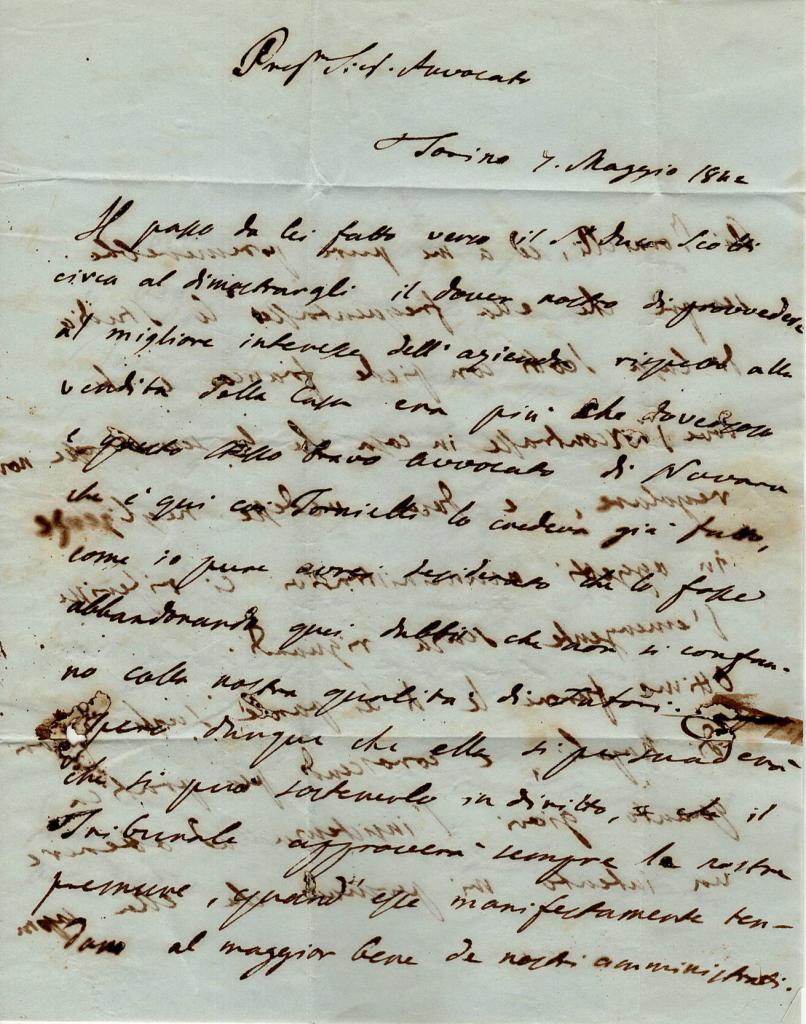 Preg.^mo Sig. Avvocato
Torino 7. Maggio 1842
Il passo da lei fatto verso il S.^r Duca Scotti
circa al dimostrargli il dover nostro di provvedere
al migliore interesse dell'azienda rispetto alla
vendita della Casa era più che doveroso
e questo bravo avvocato di Novara
che è qui coi Tornielli lo credeva già fatto,
come io pure avrei desiderato che lo fosse
abbandonando quei dubbii che non si confan-
no colla nostra qualità di tutori.
Spero dunque che ella si persuaderà
che si può sostenerlo in diritto, e che il
Tribunale approverà sempre le nostre
premure, quand'esse manifestamente ten-
dono al maggior bene de nostri amministrati.